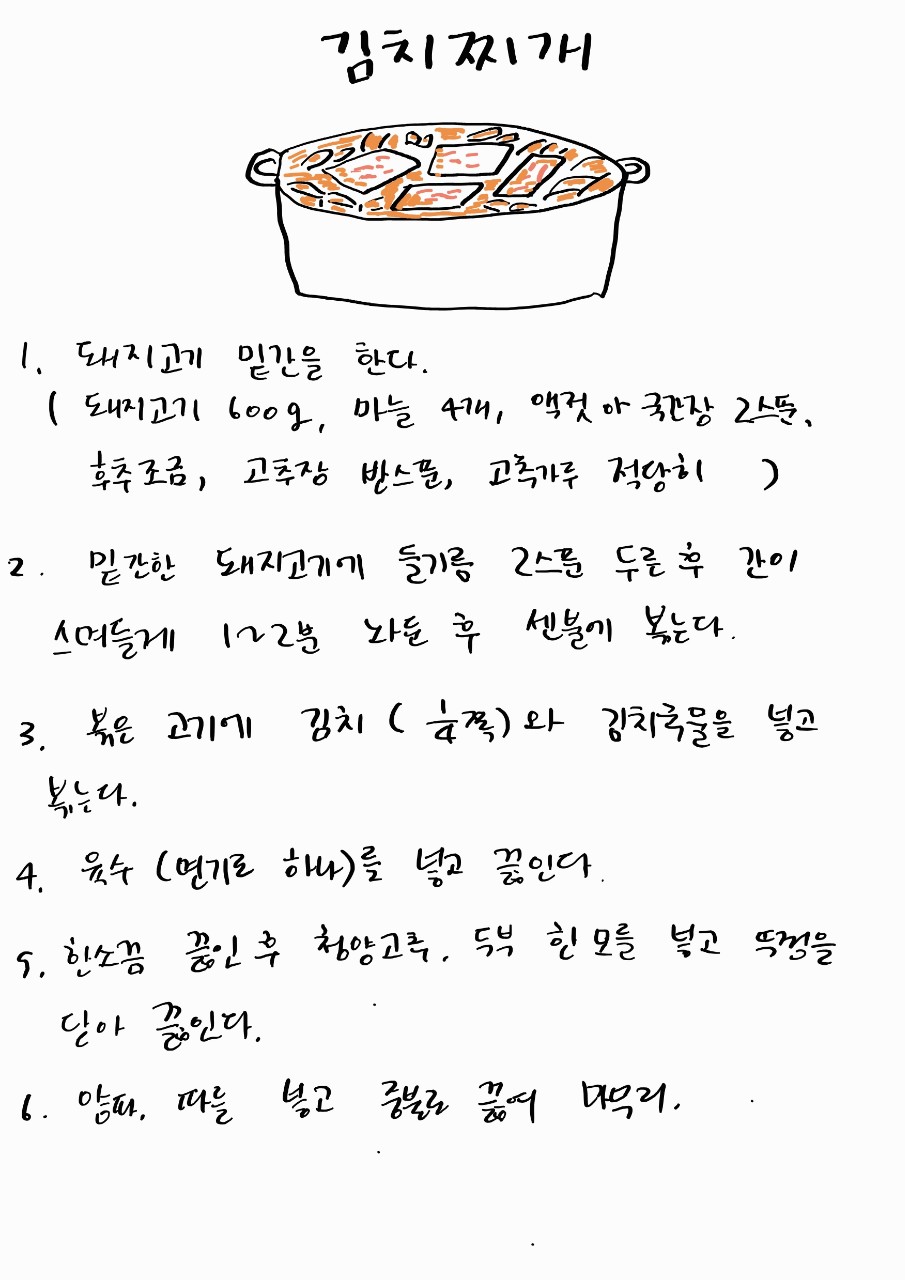 김치찌개
1. 돼지고기 밑간을 한다.
( 돼지고기 600g, 마늘 4개, 액젓 or 국간장 2스푼,
후추조금, 고추장 반스푼, 고춧가루 적당히 )
2. 밑간한 돼지고기에 들기름 2스푼 두른 후 간이
스며들게 1~2분 놔둔 후 센불에 볶는다.
3. 볶은 고기에 김치 ( 1/4쪽) 와 김치국물을 넣고
볶는다.
4. 육수 (면기로 하나)를 넣고 끓인다.
5. 한소끔 끓인 후 청양고추, 두부 한 모를 넣고 뚜껑을
닫아 끓인다.
6. 양파, 파를 넣고 중불로 끓여 마무리.